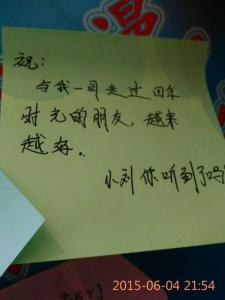 祝：
与我一同走过四年
时光的朋友，越来
越好.
小刘你听到了吗
2015-06-04 21:54